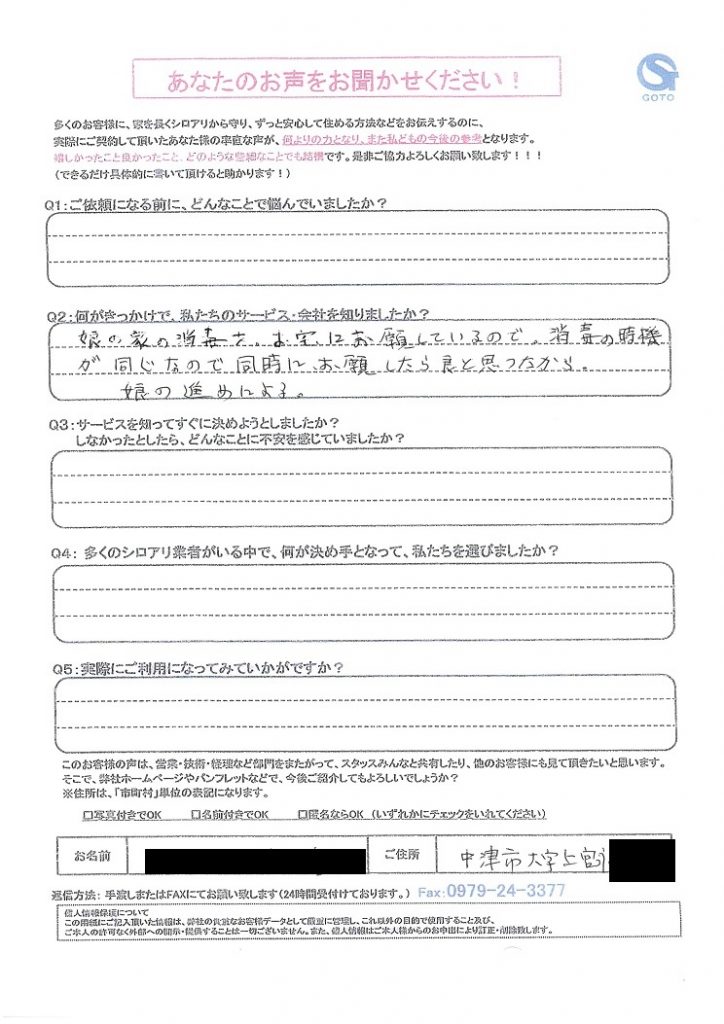 あなたのお声をお聞かせください!
GOTO
多くのお客様に、家を長くシロアリから守り、ずっと安心して住める方法などをお伝えするのに、
実際にご契約して頂いたあなた様の率直な声が、何よりの力となり、また私どもの今後の参考となります。
嬉しかったこと良かったこと、どのような些細なことでも結構です。是非ご協力よろしくお願い致します!!!
(できるだけ具体的に書いて頂けると助かります!)
Q1:ご依頼になる前に、どんなことで悩んでいましたか?
Q2:何がきっかけで、私たちのサービス・会社を知りましたか?
娘の家の消毒を。お宅にお願しているので。消毒の時機
が同じなので同時にお願したら良と思つたから。
娘の進めによる。
Q3:サービスを知ってすぐに決めようとしましたか?
しなかったとしたら、どんなことに不安を感じていましたか?
Q4: 多くのシロアリ業者がいる中で、何が決め手となって、私たちを選びましたか?
Q5:実際にご利用になってみていかがですか?
このお客様の声は、営業・技術・経理など部門をまたがって、スタッスみんなと共有したり、他のお客様にも見て頂きたいと思います。
そこで、弊社ホームページやパンフレットなどで、今後ご紹介してもよろしいでしょうか?
※住所は、「市町村」単位の表記になります。
□写真付きでOK □名前付きでOK □匿名ならOK (いずれかにチェックをいれてください)
お名前 ご住所 中津市大字上宮
返信方法: 手渡しまたはFAXにてお願い致します(24時間受付けております。) Fax:0979-24-3377
個人情報保護について
この用紙にご記入頂いた情報は、弊社の貴重なお客様データとして厳重に管理し、これ以外の目的で使用すること及び、
ご本人の許可なく外部への開示・提供することは一切ございません。また、個人情報はご本人様からのお申出により訂正・削除致します。